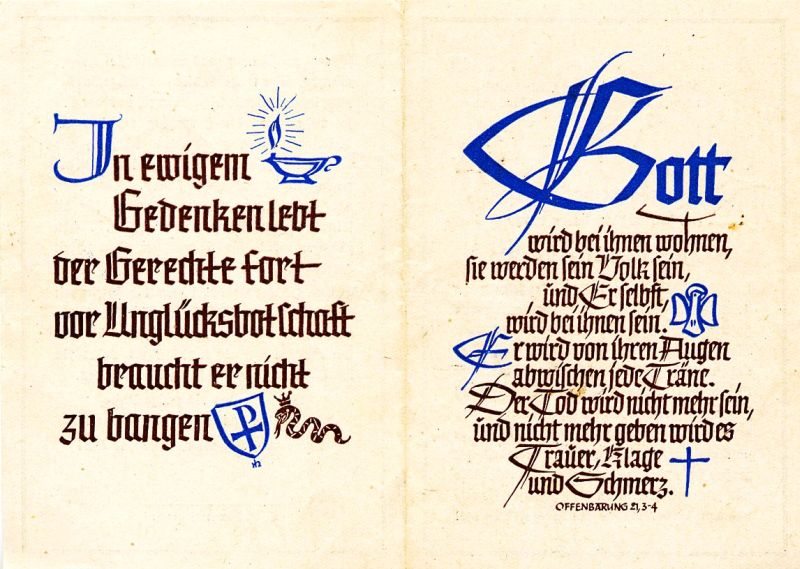 In ewigem
Gedenken lebt
der Gerechte fort
vor Unglücksbotschaft
braucht er nicht
zu bangen
Gott
wird bei ihnen wohnen,
sie werden sein Volk sein,
und Er selbst,
wird bei ihnen sein.
Er wird von ihren Augen
abwischen jede Träne.
Der Tod wird nicht mehr sein,
und nicht mehr geben wird es
Trauer, Klage
und Schmerz.
OFFENBARUNG 21,3-4